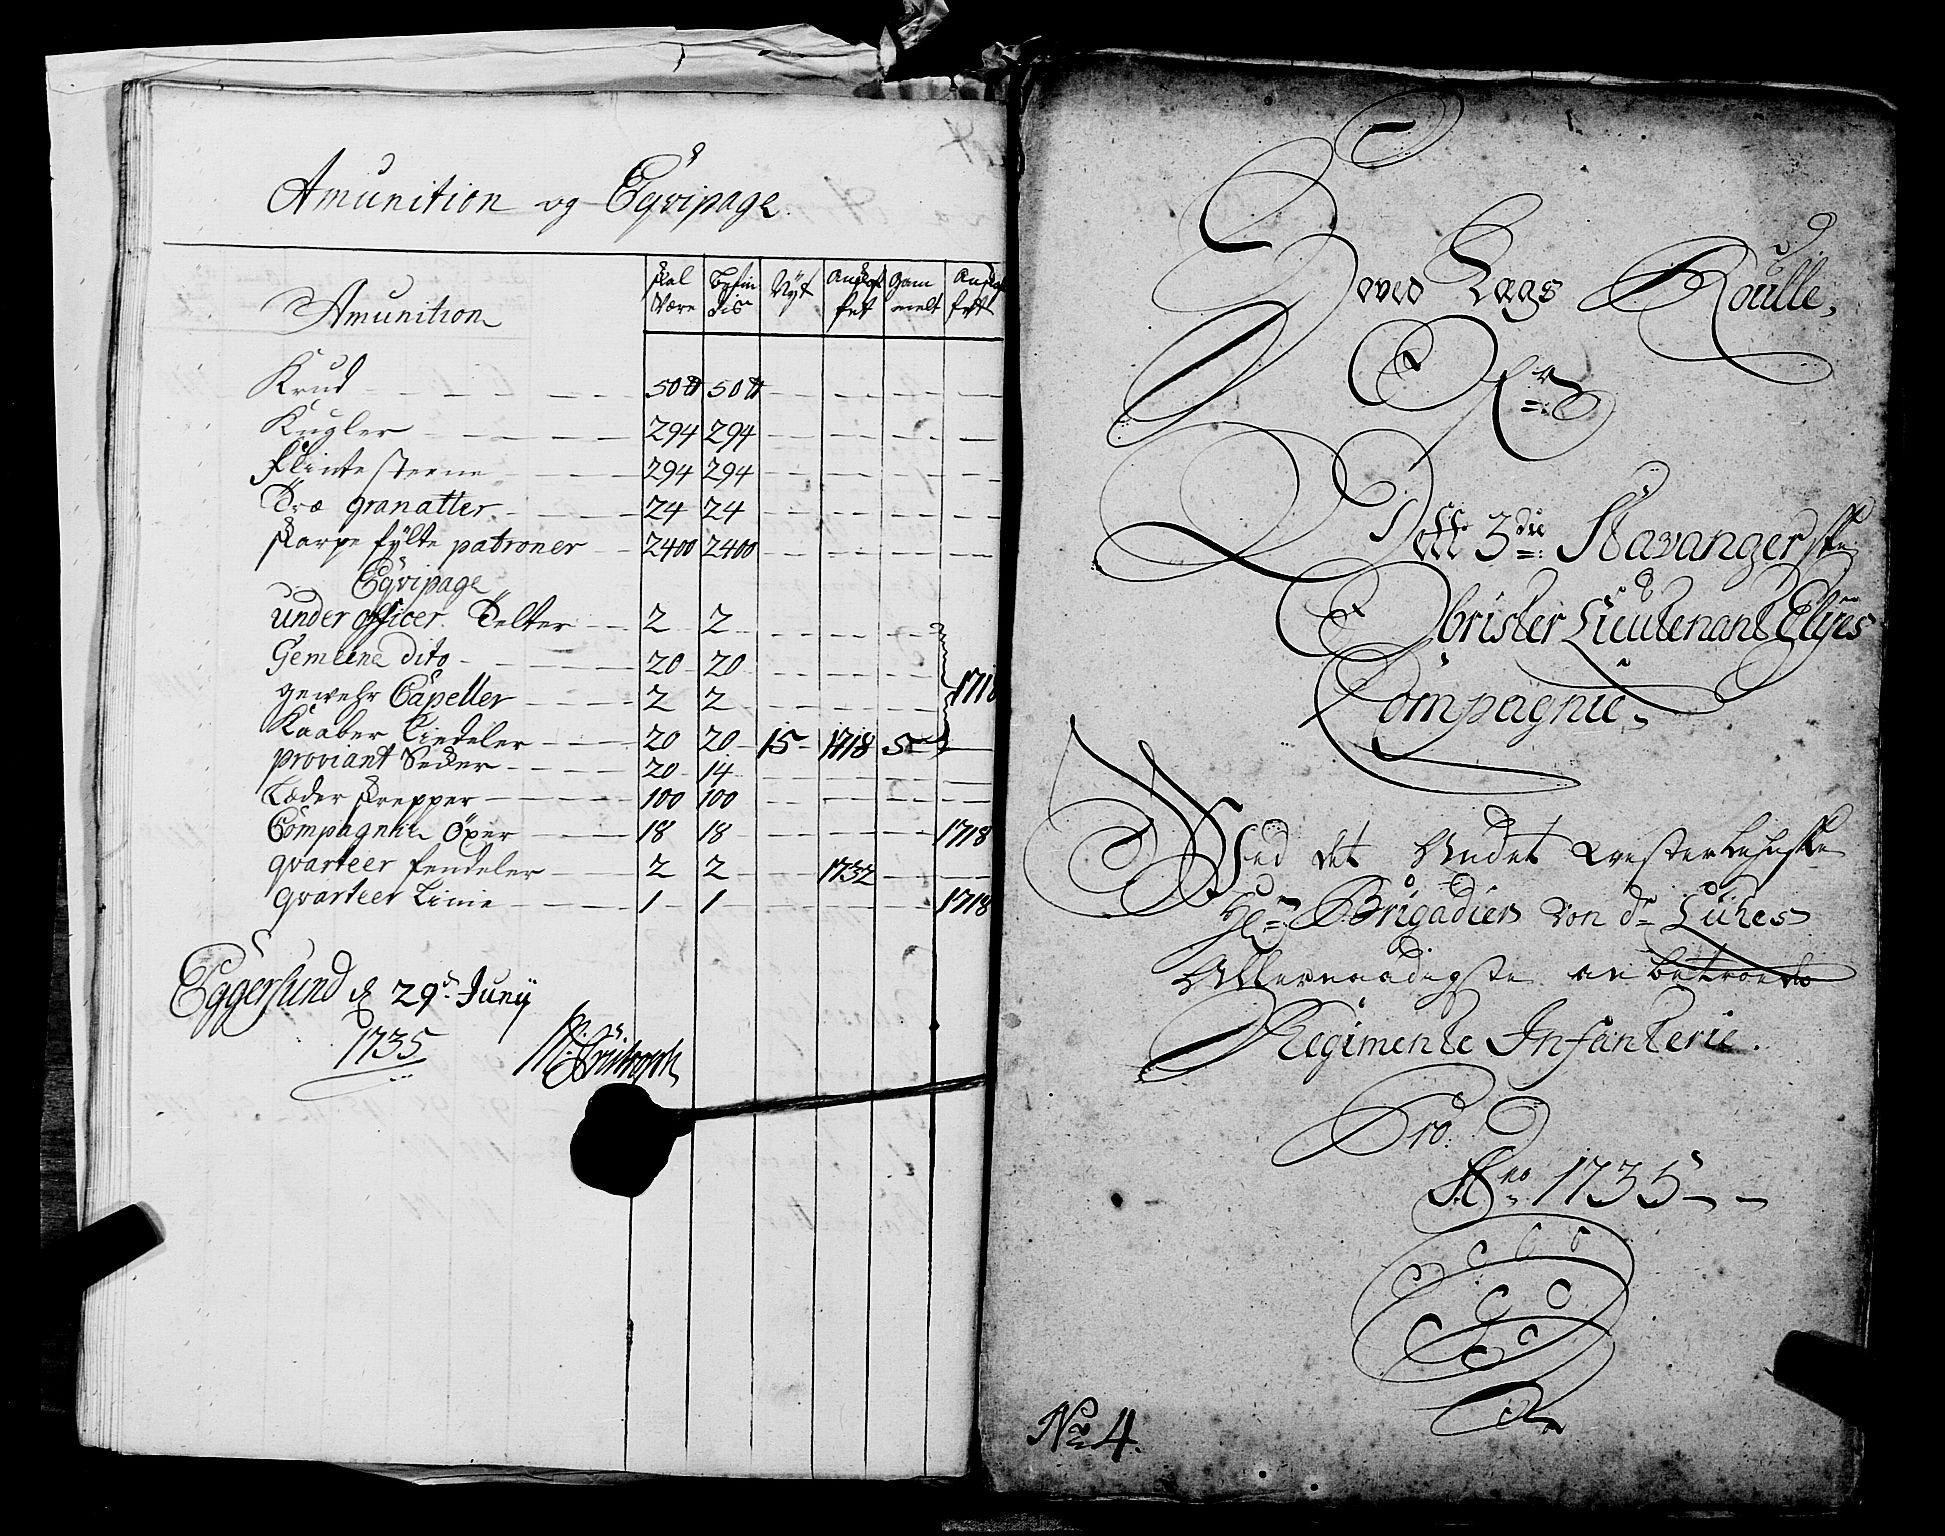 Amunition og Eqvipage.
Amunition | skal Være | befin dis | Nÿt | Anskaf fet | gam melt | Anskaf fet
Krud | 50 ℔ | 50 ℔
Kugler | 294 | 294
flinte steene | 294 | 294
Træ granatter | 24 | 24
skarpe fÿlte patroner | 2400 | 2400
Eqvipage
under officer Telter | 2 | 2
Gemeene dito | 20 | 20
gewehr Capeller | 2 | 2 | 1718
Kaaber Kiedeler | 20 | 20 | 15 | 1718 | 5
proviant Secker | 20 | 14
Læder skrepper | 100 | 100
Compagnie Öxer | 18 | 18 | 1718
qvarteer fendeler | 2 | 2 | 1732
qvarteer Linie | 1 | 1 | 1718
Eggersund d. 29d. Junÿ
1735
Hoved Lags Roulle,
Over
Dett 3die Stavangerske
Obrister Lieutenant
Compagnie.
Ved det Andet Westerlehnske
Hr. Brigadier von der Lühes
Allernaadigste anbetroede
Regimente Infanterie.
Pro
Ano 1735
No 4.